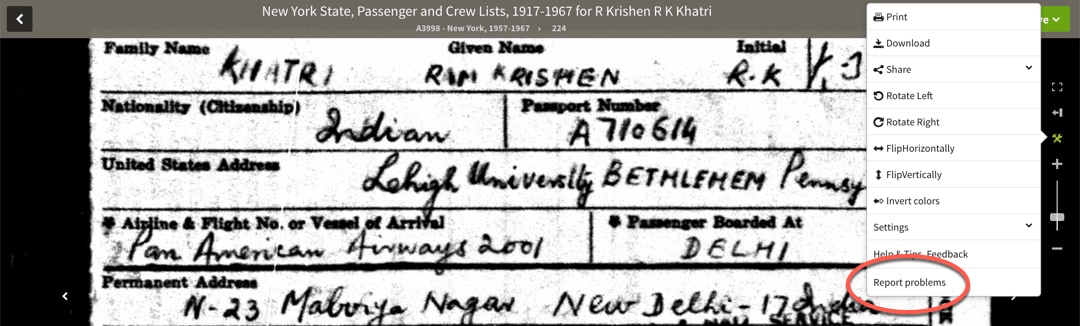 New York State, Passenger and Crew Lists, 1917-1967 for R Krishen R K Khatri
A3998 - New York, 1957-1967 › 224
Family Name Given Name Initial
KHATRI RAM KRISHEN R.K
Nationality (Citizenship) Passport Number
Indian A710614
United States Address
Lehigh University BETHLEHEM Pennsy
Airline & Flight No. or Vessel of Arrival Passenger Boarded At
Pan American Airways 2001 DELHI
Permanent Address
N-23 Nagar New Delhi-17
Print
Download
Share
Rotate Left
Rotate Right
FlipHorizontally
FlipVertically
Invert colors
Settings
Help & Tips, Feedback
Report problems